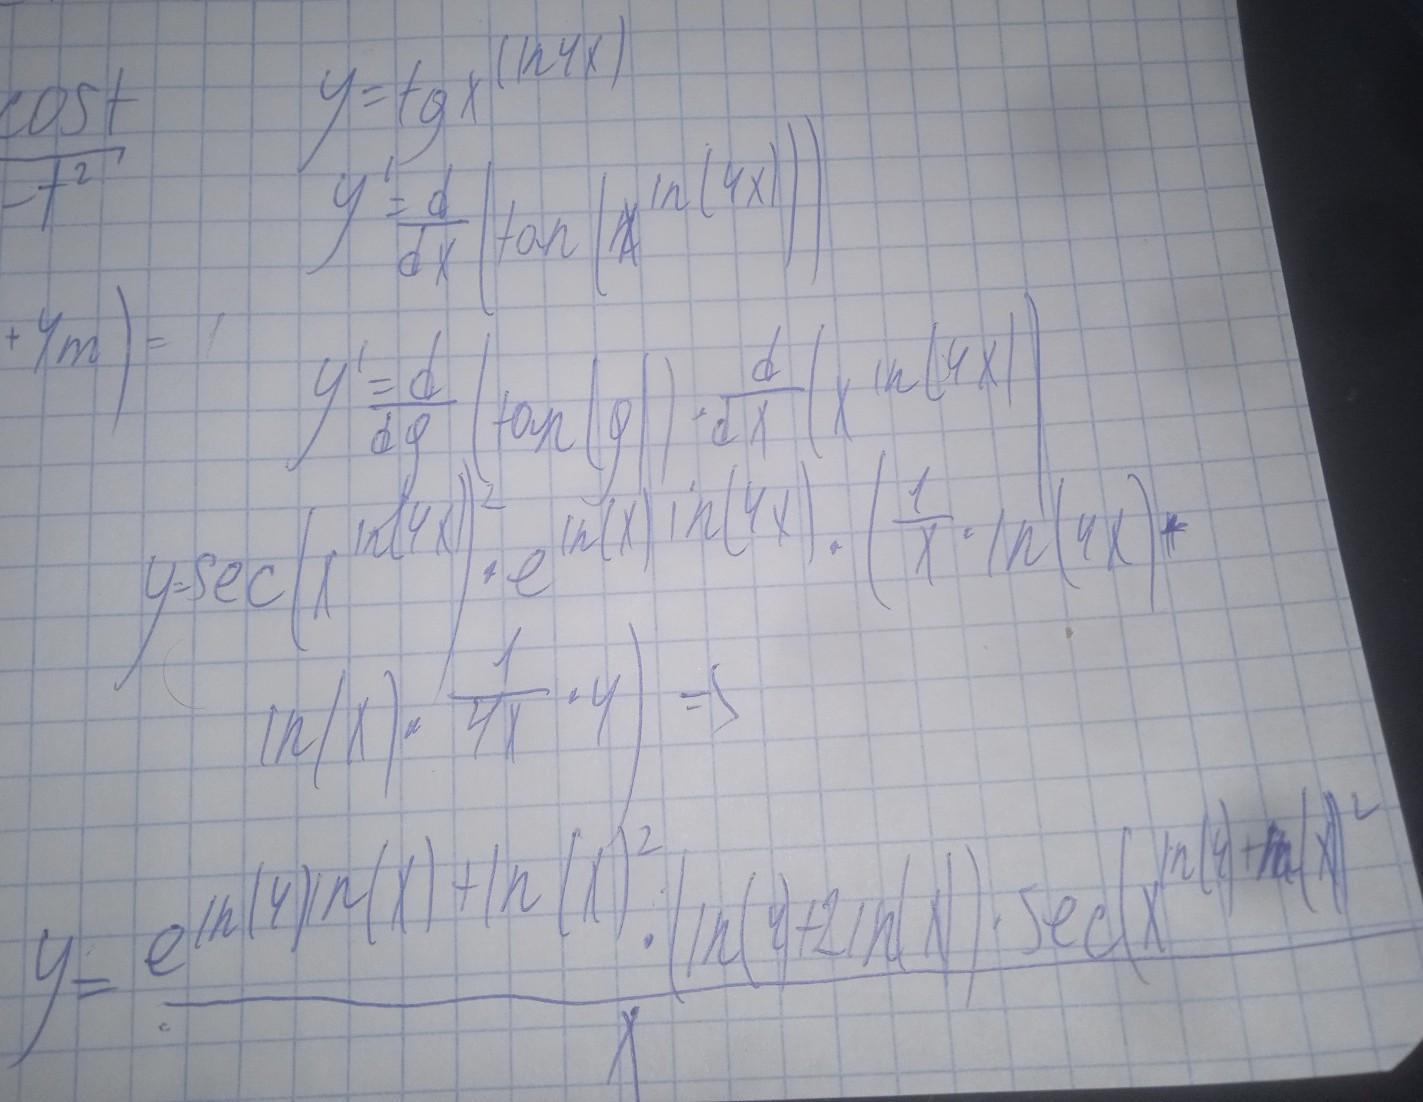 cost
-t²
+ 4m) =
y = tg x^(ln4x)
y' = d/dx (tan(x^ln(4x)))
y' = d/dg (tan(g)) · d/dx (x^ln(4x))
y = sec(x^ln(4x))² · e^ln(x)ln(4x) · (1/x · ln(4x) +
ln(x) · 1/4x · 4) =>
y = e^ln(4)ln(x)+ln(x)² · (ln(4)+2ln(x)) · sec(x^ln(4)+ln(x))²
x